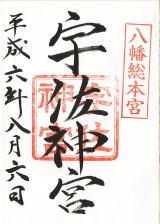 八幡総本宮
宇佐神宮
平成六年八月六日